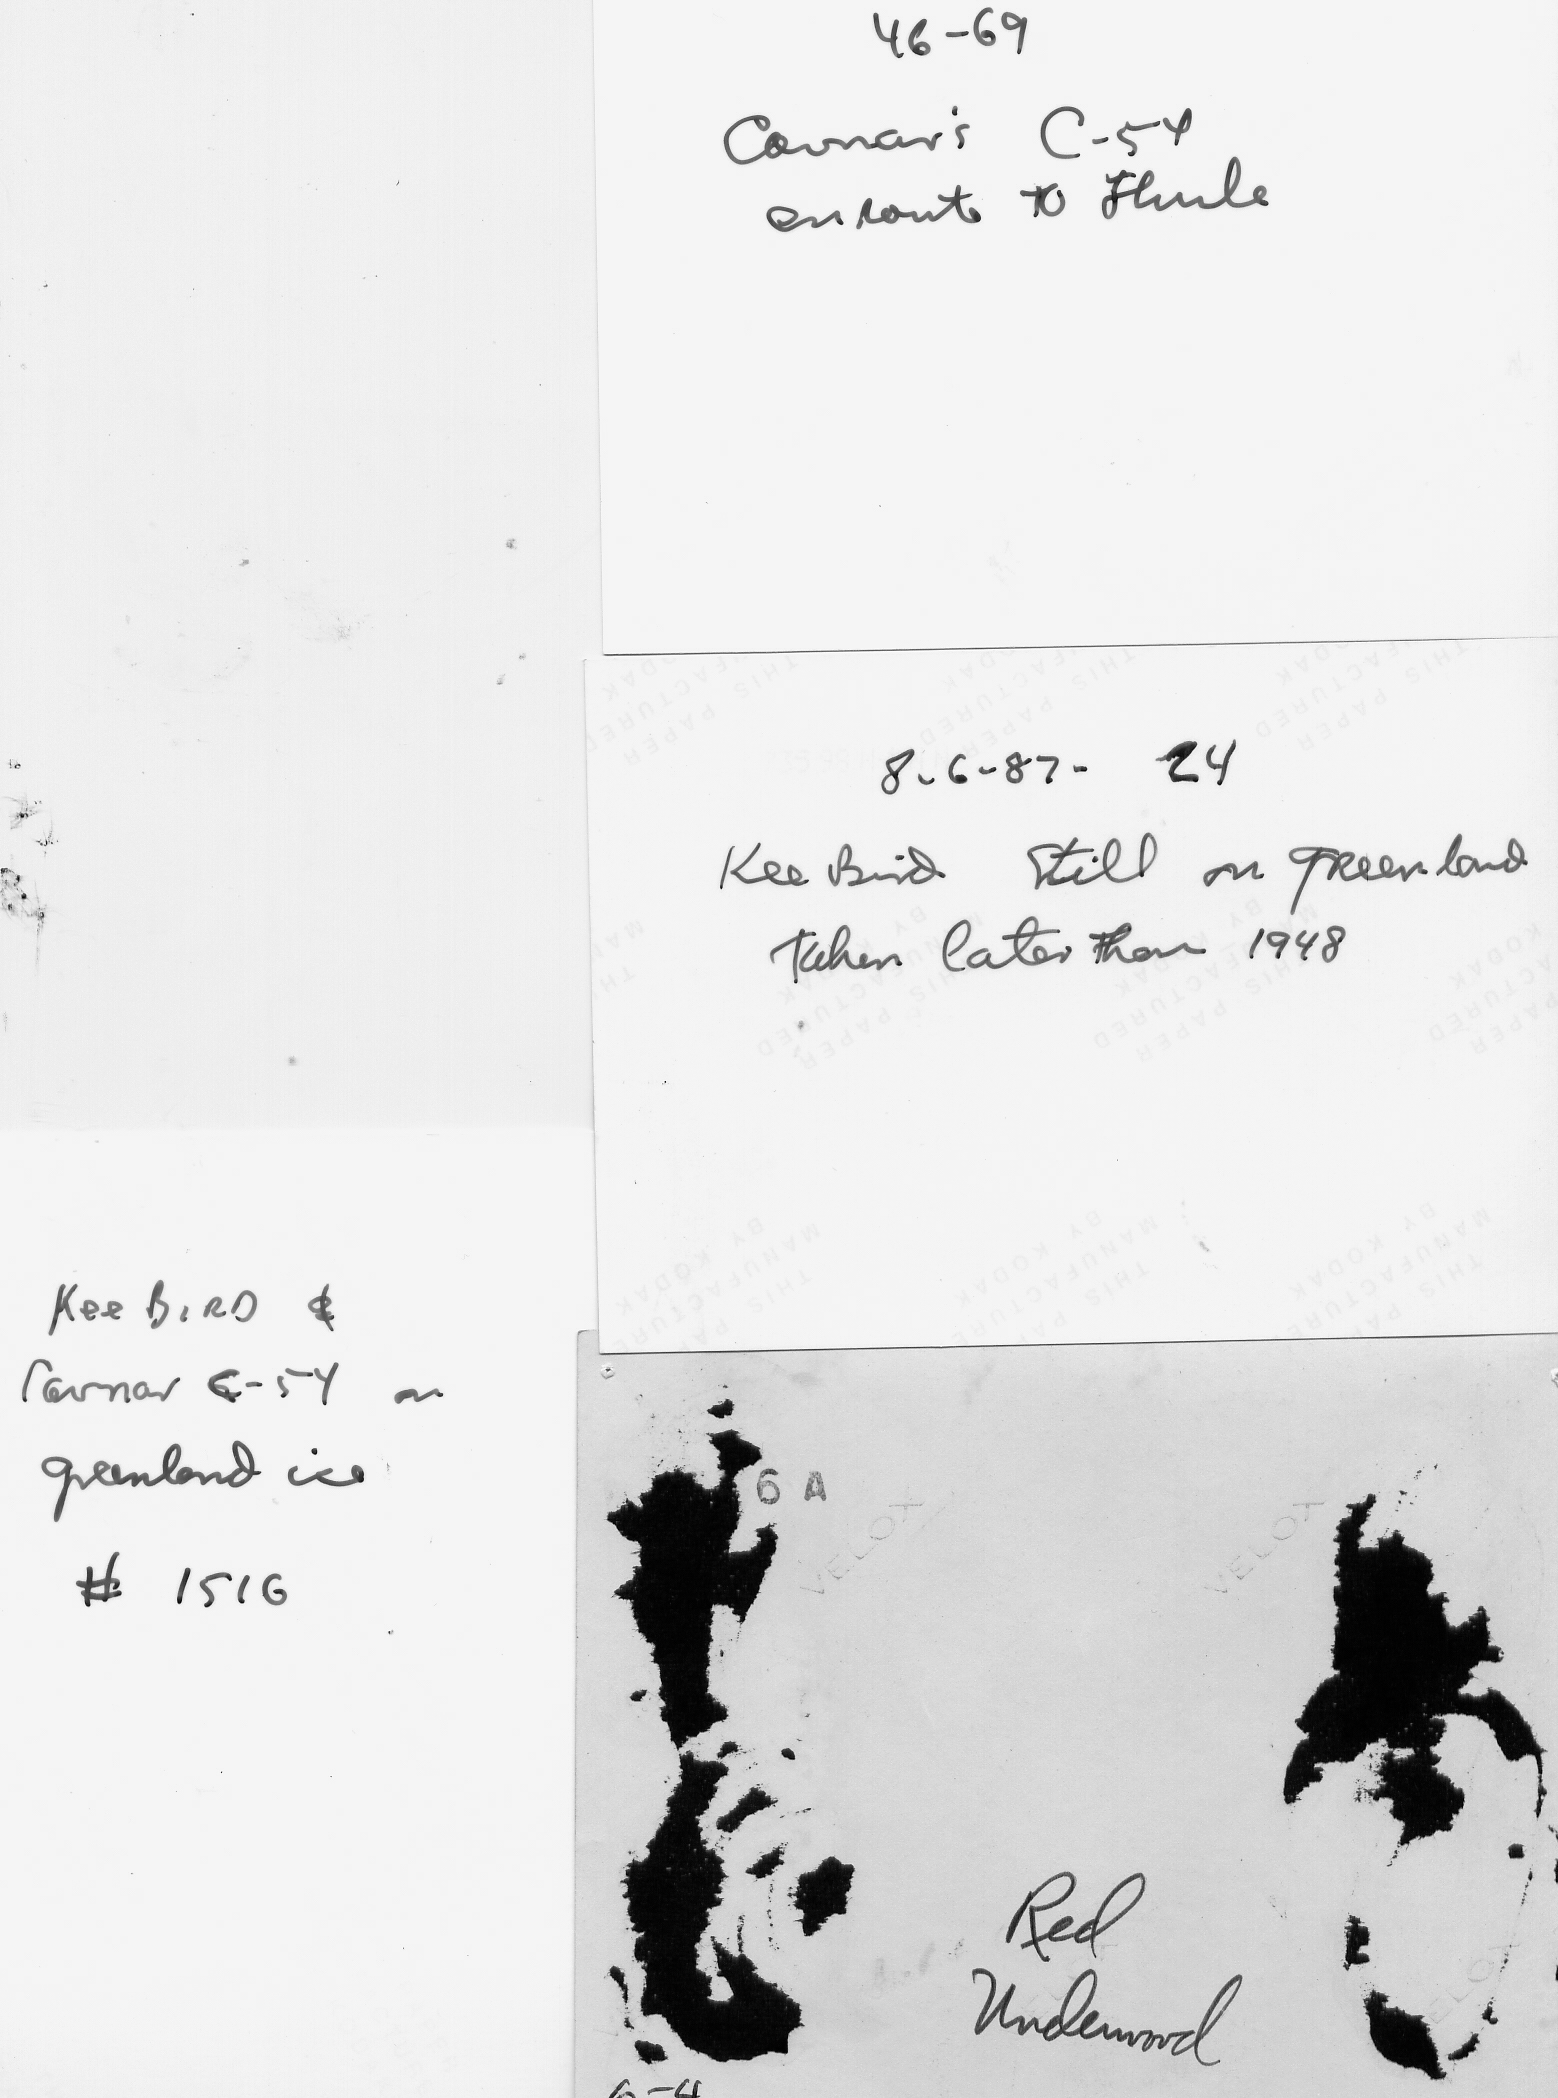 46-69
Cavnar's C-54
enroute to Thule
8-6-87- 24
Kee Bird Still on Greenland
Taken later than 1948
THIS PAPER
MANUFACTURED
BY KODAK
Kee BIRD &
Cavnar C-54 on
greenland ice
# 1516
6 A
VELOX
VELOX
Red
Underwood
6-4